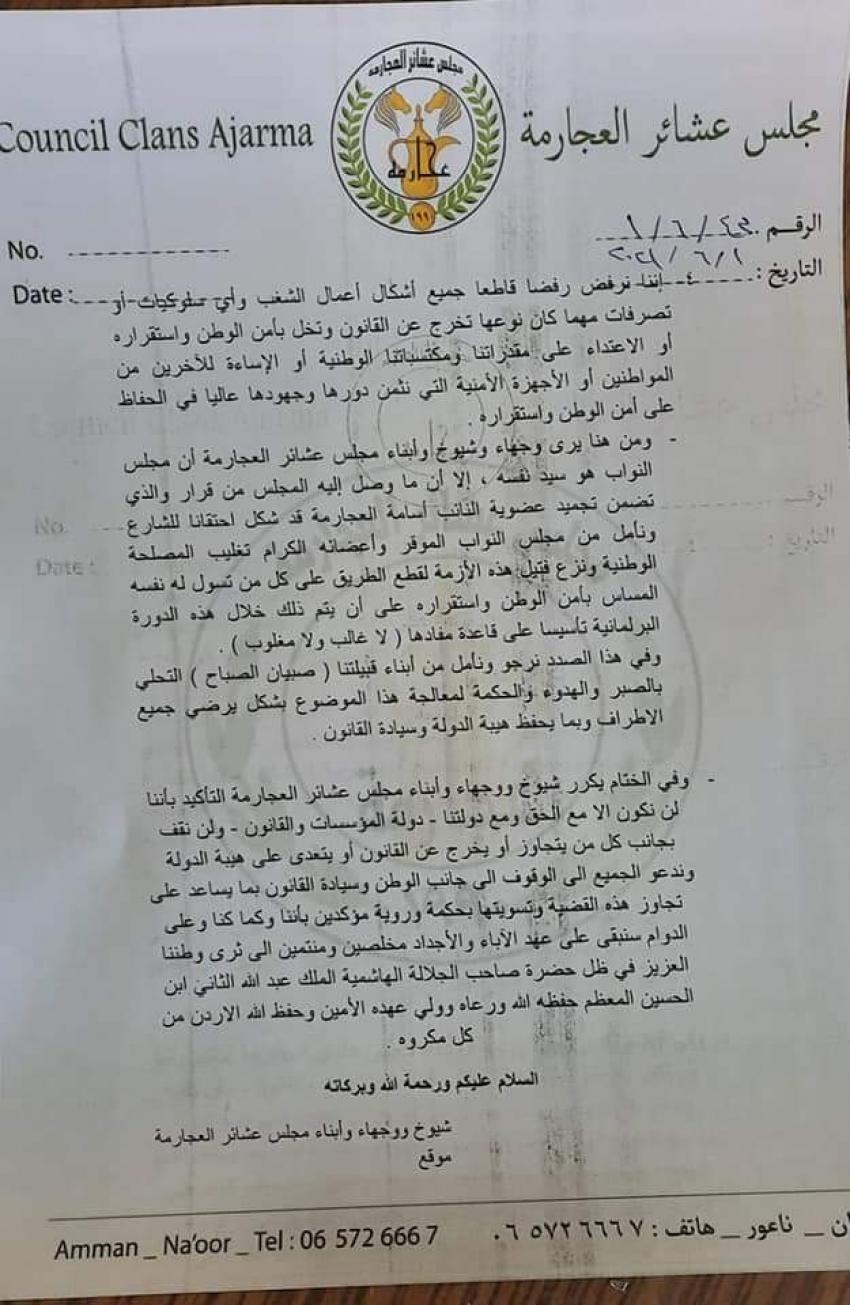 مجلس عشائر العجارمة
عجارمة
١٩٩
Council Clans Ajarma
مجلس عشائر العجارمة
No. ----------------
الرقم
Date :
التاريخ : ٢٠٢١/٦/١
٤- إننا نرفض رفضا قاطعا جميع أشكال أعمال الشغب وأي سلوكيات أو
تصرفات مهما كان نوعها تخرج عن القانون وتخل بأمن الوطن واستقراره
أو الاعتداء على مقدراتنا ومكتسباتنا الوطنية أو الإساءة للآخرين من
المواطنين أو الأجهزة الأمنية التي نثمن دورها وجهودها عاليا في الحفاظ
على أمن الوطن واستقراره .
- ومن هنا يرى وجهاء وشيوخ وأبناء مجلس عشائر العجارمة أن مجلس
النواب هو سيد نفسه ، إلا أن ما وصل إليه المجلس من قرار والذي
تضمن تجميد عضوية النائب أسامة العجارمة قد شكل احتقانا للشارع
ونأمل من مجلس النواب الموقر وأعضائه الكرام تغليب المصلحة
الوطنية ونزع فتيل هذه الأزمة لقطع الطريق على كل من تسول له نفسه
المساس بأمن الوطن واستقراره على أن يتم ذلك خلال هذه الدورة
البرلمانية تأسيسا على قاعدة مفادها ( لا غالب ولا مغلوب ) .
وفي هذا الصدد نرجو ونأمل من أبناء قبيلتنا ( صبيان الصباح ) التحلي
بالصبر والهدوء والحكمة لمعالجة هذا الموضوع بشكل يرضي جميع
الاطراف وبما يحفظ هيبة الدولة وسيادة القانون .
- وفي الختام يكرر شيوخ ووجهاء وأبناء مجلس عشائر العجارمة التأكيد بأننا
لن نكون الا مع الحق ومع دولتنا - دولة المؤسسات والقانون - ولن نقف
بجانب كل من يتجاوز أو يخرج عن القانون أو يتعدى على هيبة الدولة
وندعو الجميع الى الوقوف الى جانب الوطن وسيادة القانون بما يساعد على
تجاوز هذه القضية وتسويتها بحكمة وروية مؤكدين بأننا وكما كنا وعلى
الدوام سنبقى على عهد الآباء والأجداد مخلصين ومنتمين الى ثرى وطننا
العزيز في ظل حضرة صاحب الجلالة الهاشمية الملك عبد الله الثاني ابن
الحسين المعظم حفظه الله ورعاه وولي عهده الأمين وحفظ الله الاردن من
كل مكروه .
السلام عليكم ورحمة الله وبركاته
شيوخ ووجهاء وأبناء مجلس عشائر العجارمة
موقع
Amman _ Na'oor _ Tel : 06 572 666 7
ان _ ناعور _ هاتف : ٠٦ ٥٧٢ ٦٦٦ ٧